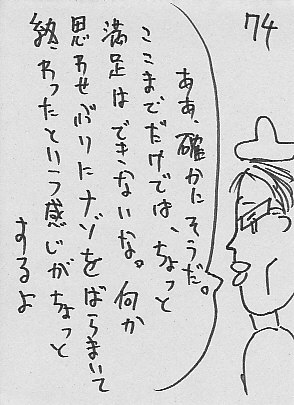 74
ああ、確かにそうだ。
ここまでだけでは、ちょっと
満足はできないな。何か
思わせぶりにナゾをばらまいて
終わったという感じがちょっと
するよ